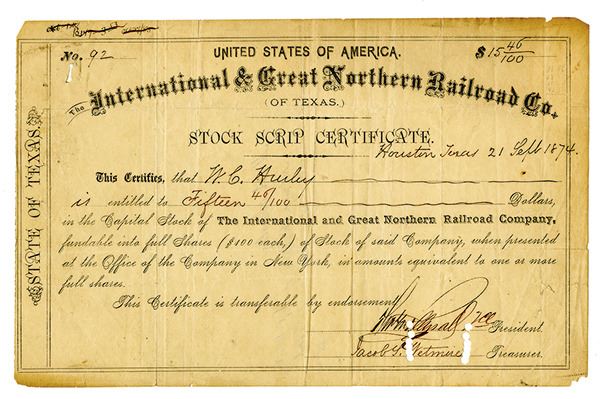 No. 92
UNITED STATES OF AMERICA.
$15 46/100
The International & Great Northern Railroad Co.
(OF TEXAS.)
STOCK SCRIP CERTIFICATE.
Houston Texas 21 Sept 1874.
This Certifies, that W. C. Hurley
is entitled to Fifteen 46/100 Dollars,
in the Capital Stock of The International and Great Northern Railroad Company,
fundable into full Shares ($100 each,) of Stock of said Company, when presented
at the Office of the Company in New York, in amounts equivalent to one or more
full shares.
This Certificate is transferable by endorsement
President.
Jacob S. Wetmore Treasurer.
STATE OF TEXAS.